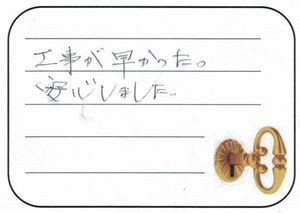 工事が早かった。
安心しました。